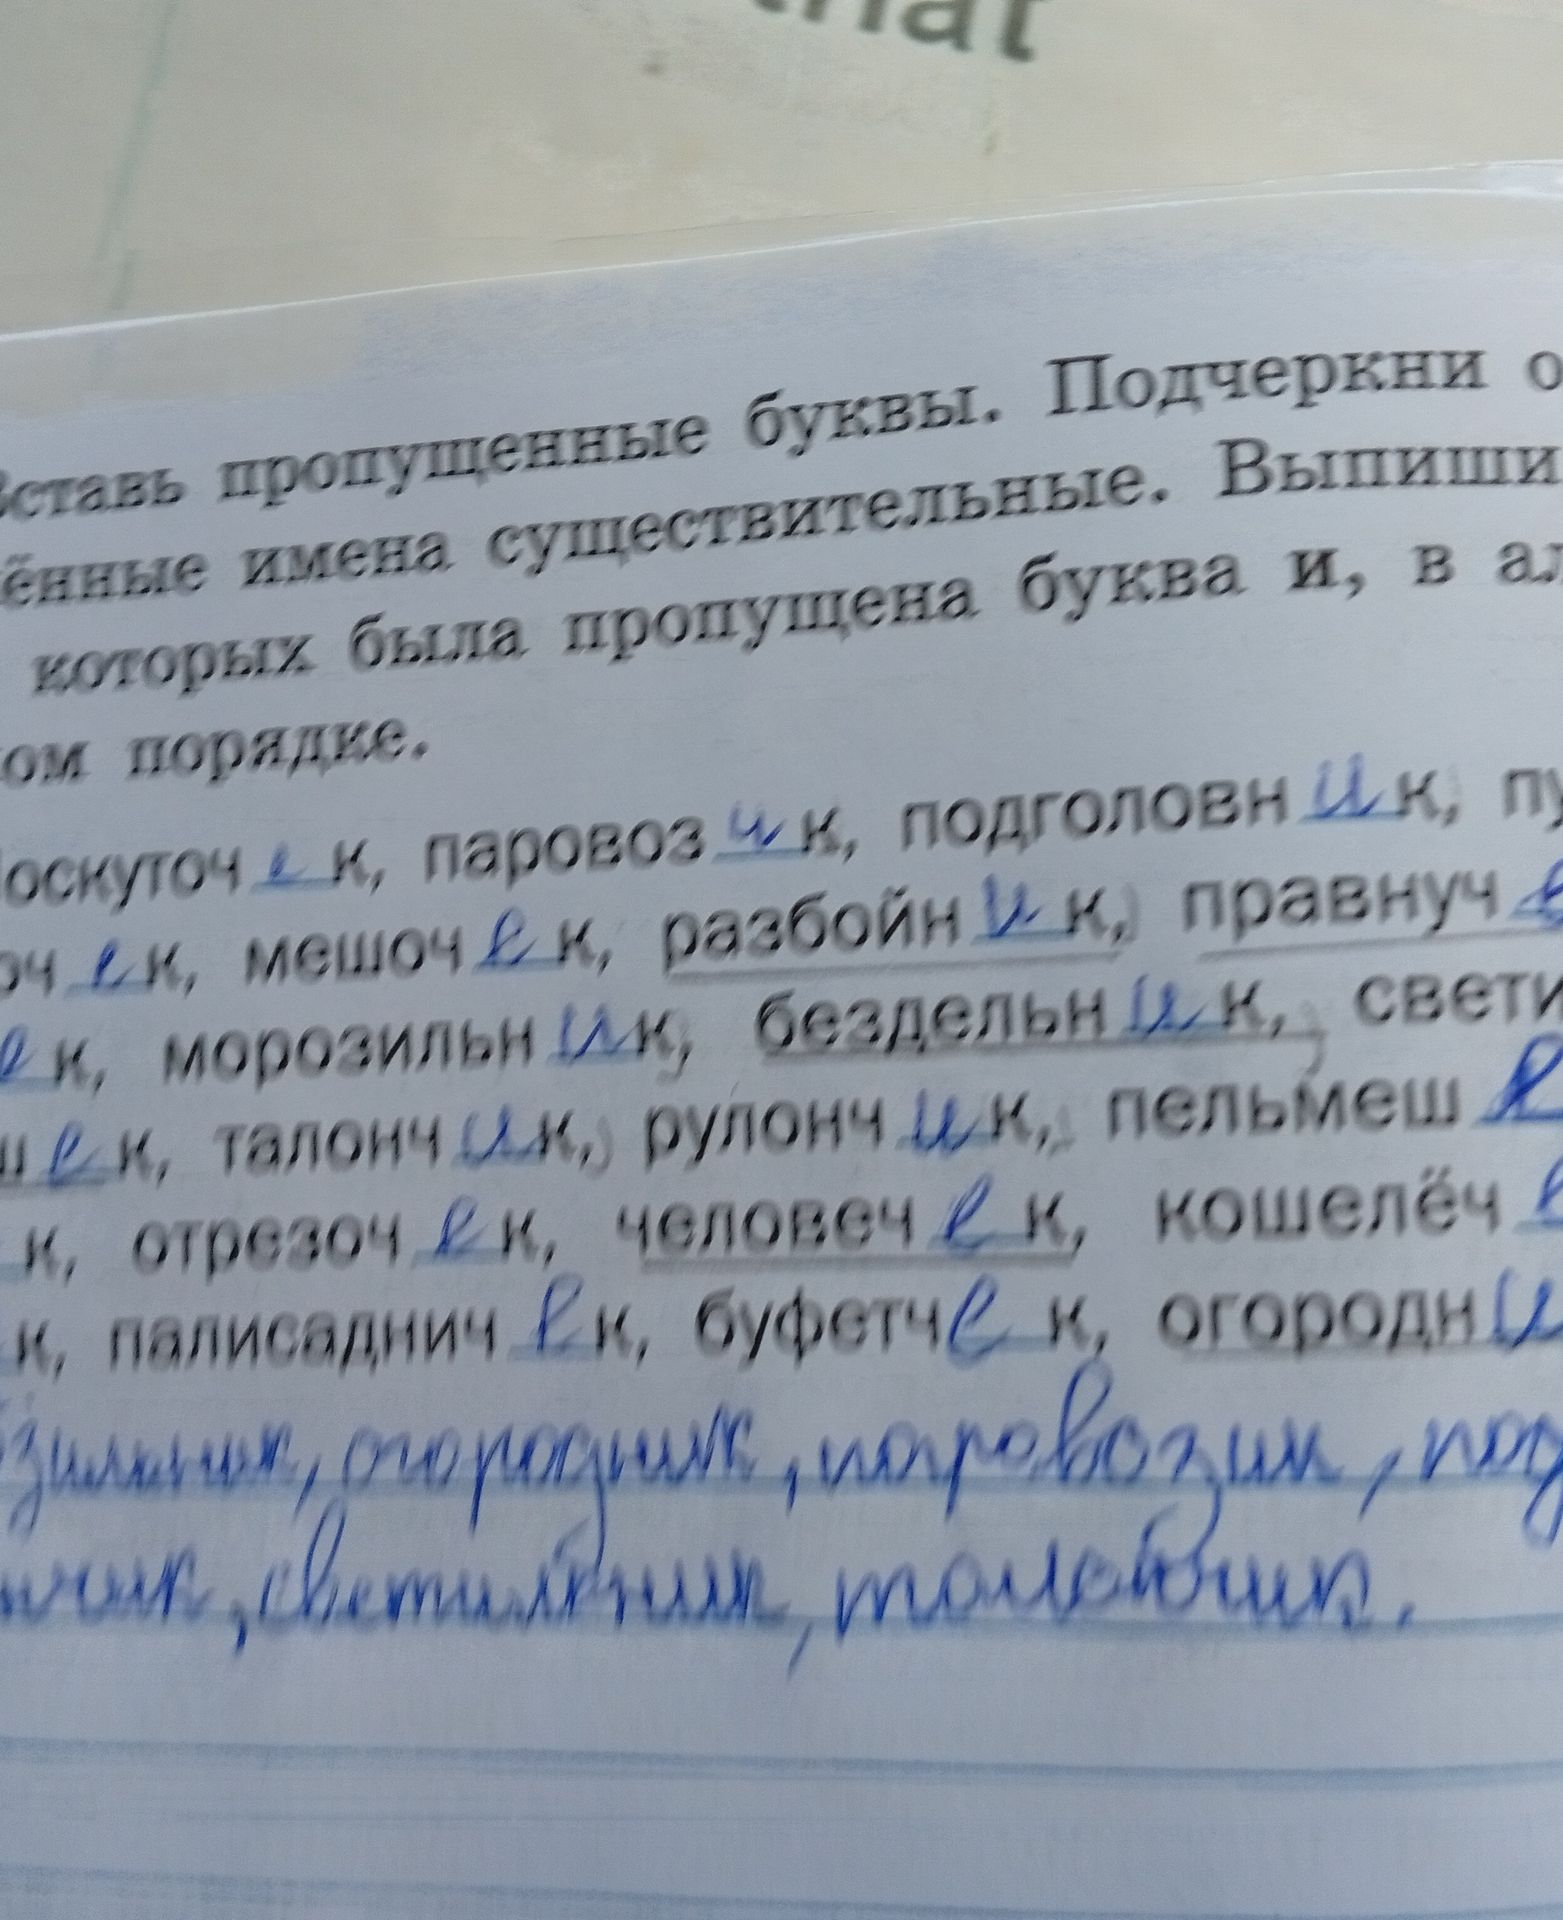 hat
Вставь пропущенные буквы. Подчеркни о
ённые имена существительные. Выпиши
которых была пропущена буква и, в ал
ом порядке.
Лоскуточек, паровозик, подголовник, пу
оч е к, мешочек, разбойник, правнуч е
е к, морозильник, бездельник, свети
ш е к, талончик, рулончик, пельмеш е
к, отрезочек, человечек, кошелёч е
к, палисадничек, буфетчек, огородн и
зильник, огородник, паровозик, под
нчик, светильник,